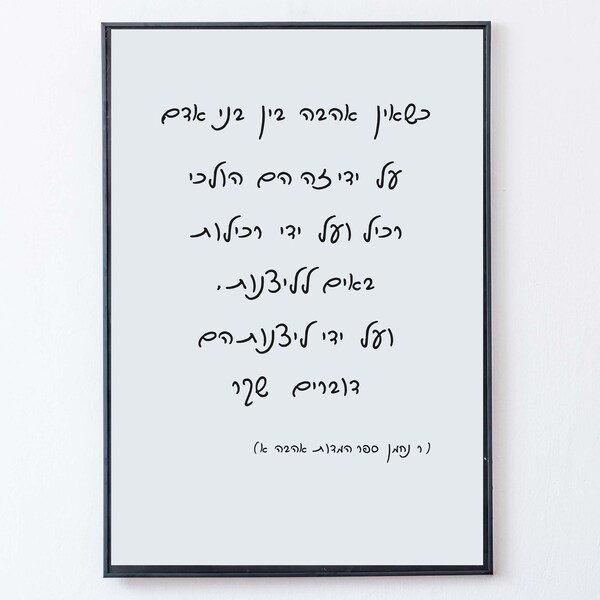 כשאין אהבה בין בני אדם
על ידי זה הם הולכי
רכיל ועל ידי רכילות
באים לליצנות,
ועל ידי ליצנות הם
דוברים שקר
(ר נחמן ספר המדות אהבה א)